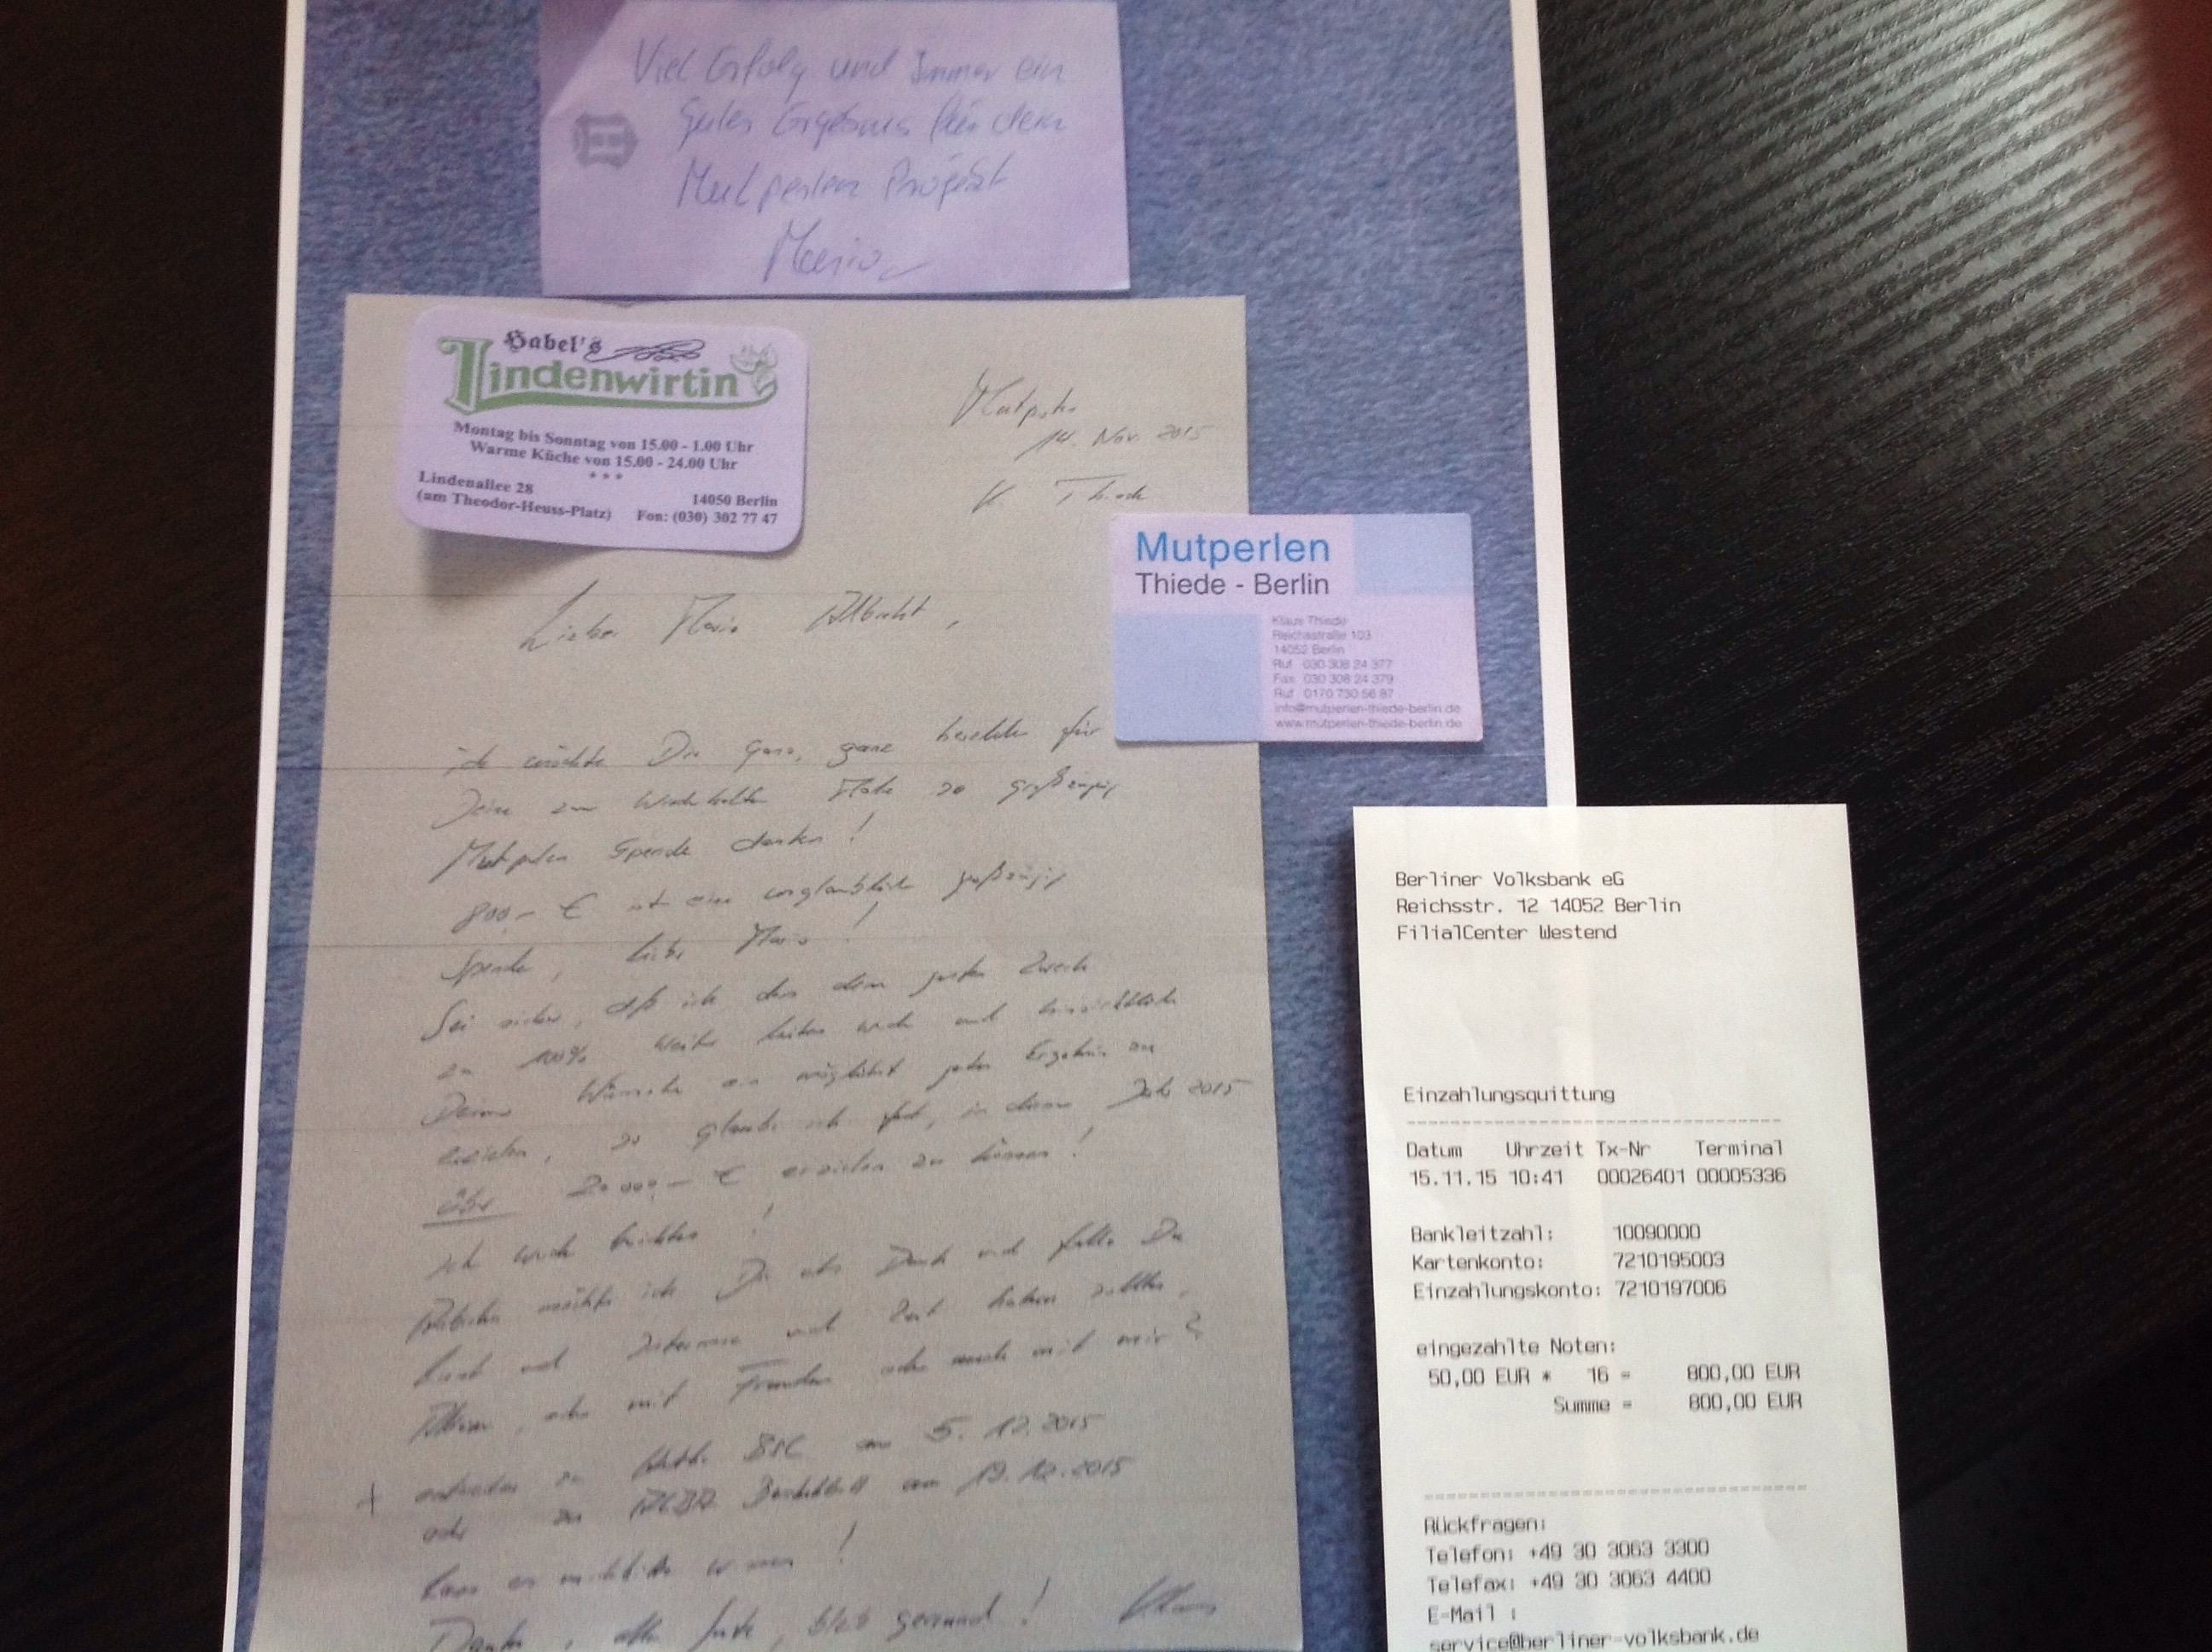 Viel Erfolg und Immer ein
gutes Ergebnis für dein
Mutperlen Projekt
Mario
Habel's
Lindenwirtin
Montag bis Sonntag von 15.00 - 1.00 Uhr
Warme Küche von 15.00 - 24.00 Uhr
***
Lindenallee 28
(am Theodor-Heuss-Platz)
14050 Berlin
Fon: (030) 302 77 47
14. Nov. 2015
K. Thiede
Mutperlen
Thiede - Berlin
Klaus Thiede
Reichsstraße 103
14052 Berlin
Ruf 030 308 24 377
Fax 030 308 24 379
Ruf 0170 730 56 87
info@mutperlen-thiede-berlin.de
www.mutperlen-thiede-berlin.de
Lieber Mario Albrecht,
ich möchte Dir ganz, ganz herzlich für
Deine zum wiederholten Male so großzügige
Mutperlen Spende danken!
800,- € ist eine unglaublich großzügige
Spende, lieber Mario!
Sei sicher, daß ich das dem guten Zweck
zu 100% weiter leiten werde und hinsichtlich
Deines Wunsches ein möglichst gutes Ergebnis zu
erzielen, so glaube ich fest, in diesem Jahr 2015
über 20.000,- € erzielen zu können!
Ich werde berichten!
möchte ich Dir als Dank und falls Du
Lust und Interesse und Zeit haben solltest,
Alleine, oder mit Freunden oder auch mit mir?
+ entweder zu Hertha BSC am 5.12.2015
oder zu ALBA Basketball am 19.12.2015
Lass es mich bitte wissen!
Danke, alles Gute, bleib gesund! Klaus
Berliner Volksbank eG
Reichsstr. 12 14052 Berlin
FilialCenter Westend
Einzahlungsquittung
Datum Uhrzeit Tx-Nr Terminal
15.11.15 10:41 00026401 00005336
Bankleitzahl: 10090000
Kartenkonto: 7210195003
Einzahlungskonto: 7210197006
eingezahlte Noten:
50,00 EUR * 16 = 800,00 EUR
Summe = 800,00 EUR
Rückfragen:
Telefon: +49 30 3063 3300
Telefax: +49 30 3063 4400
E-Mail :
service@berliner-volksbank.de